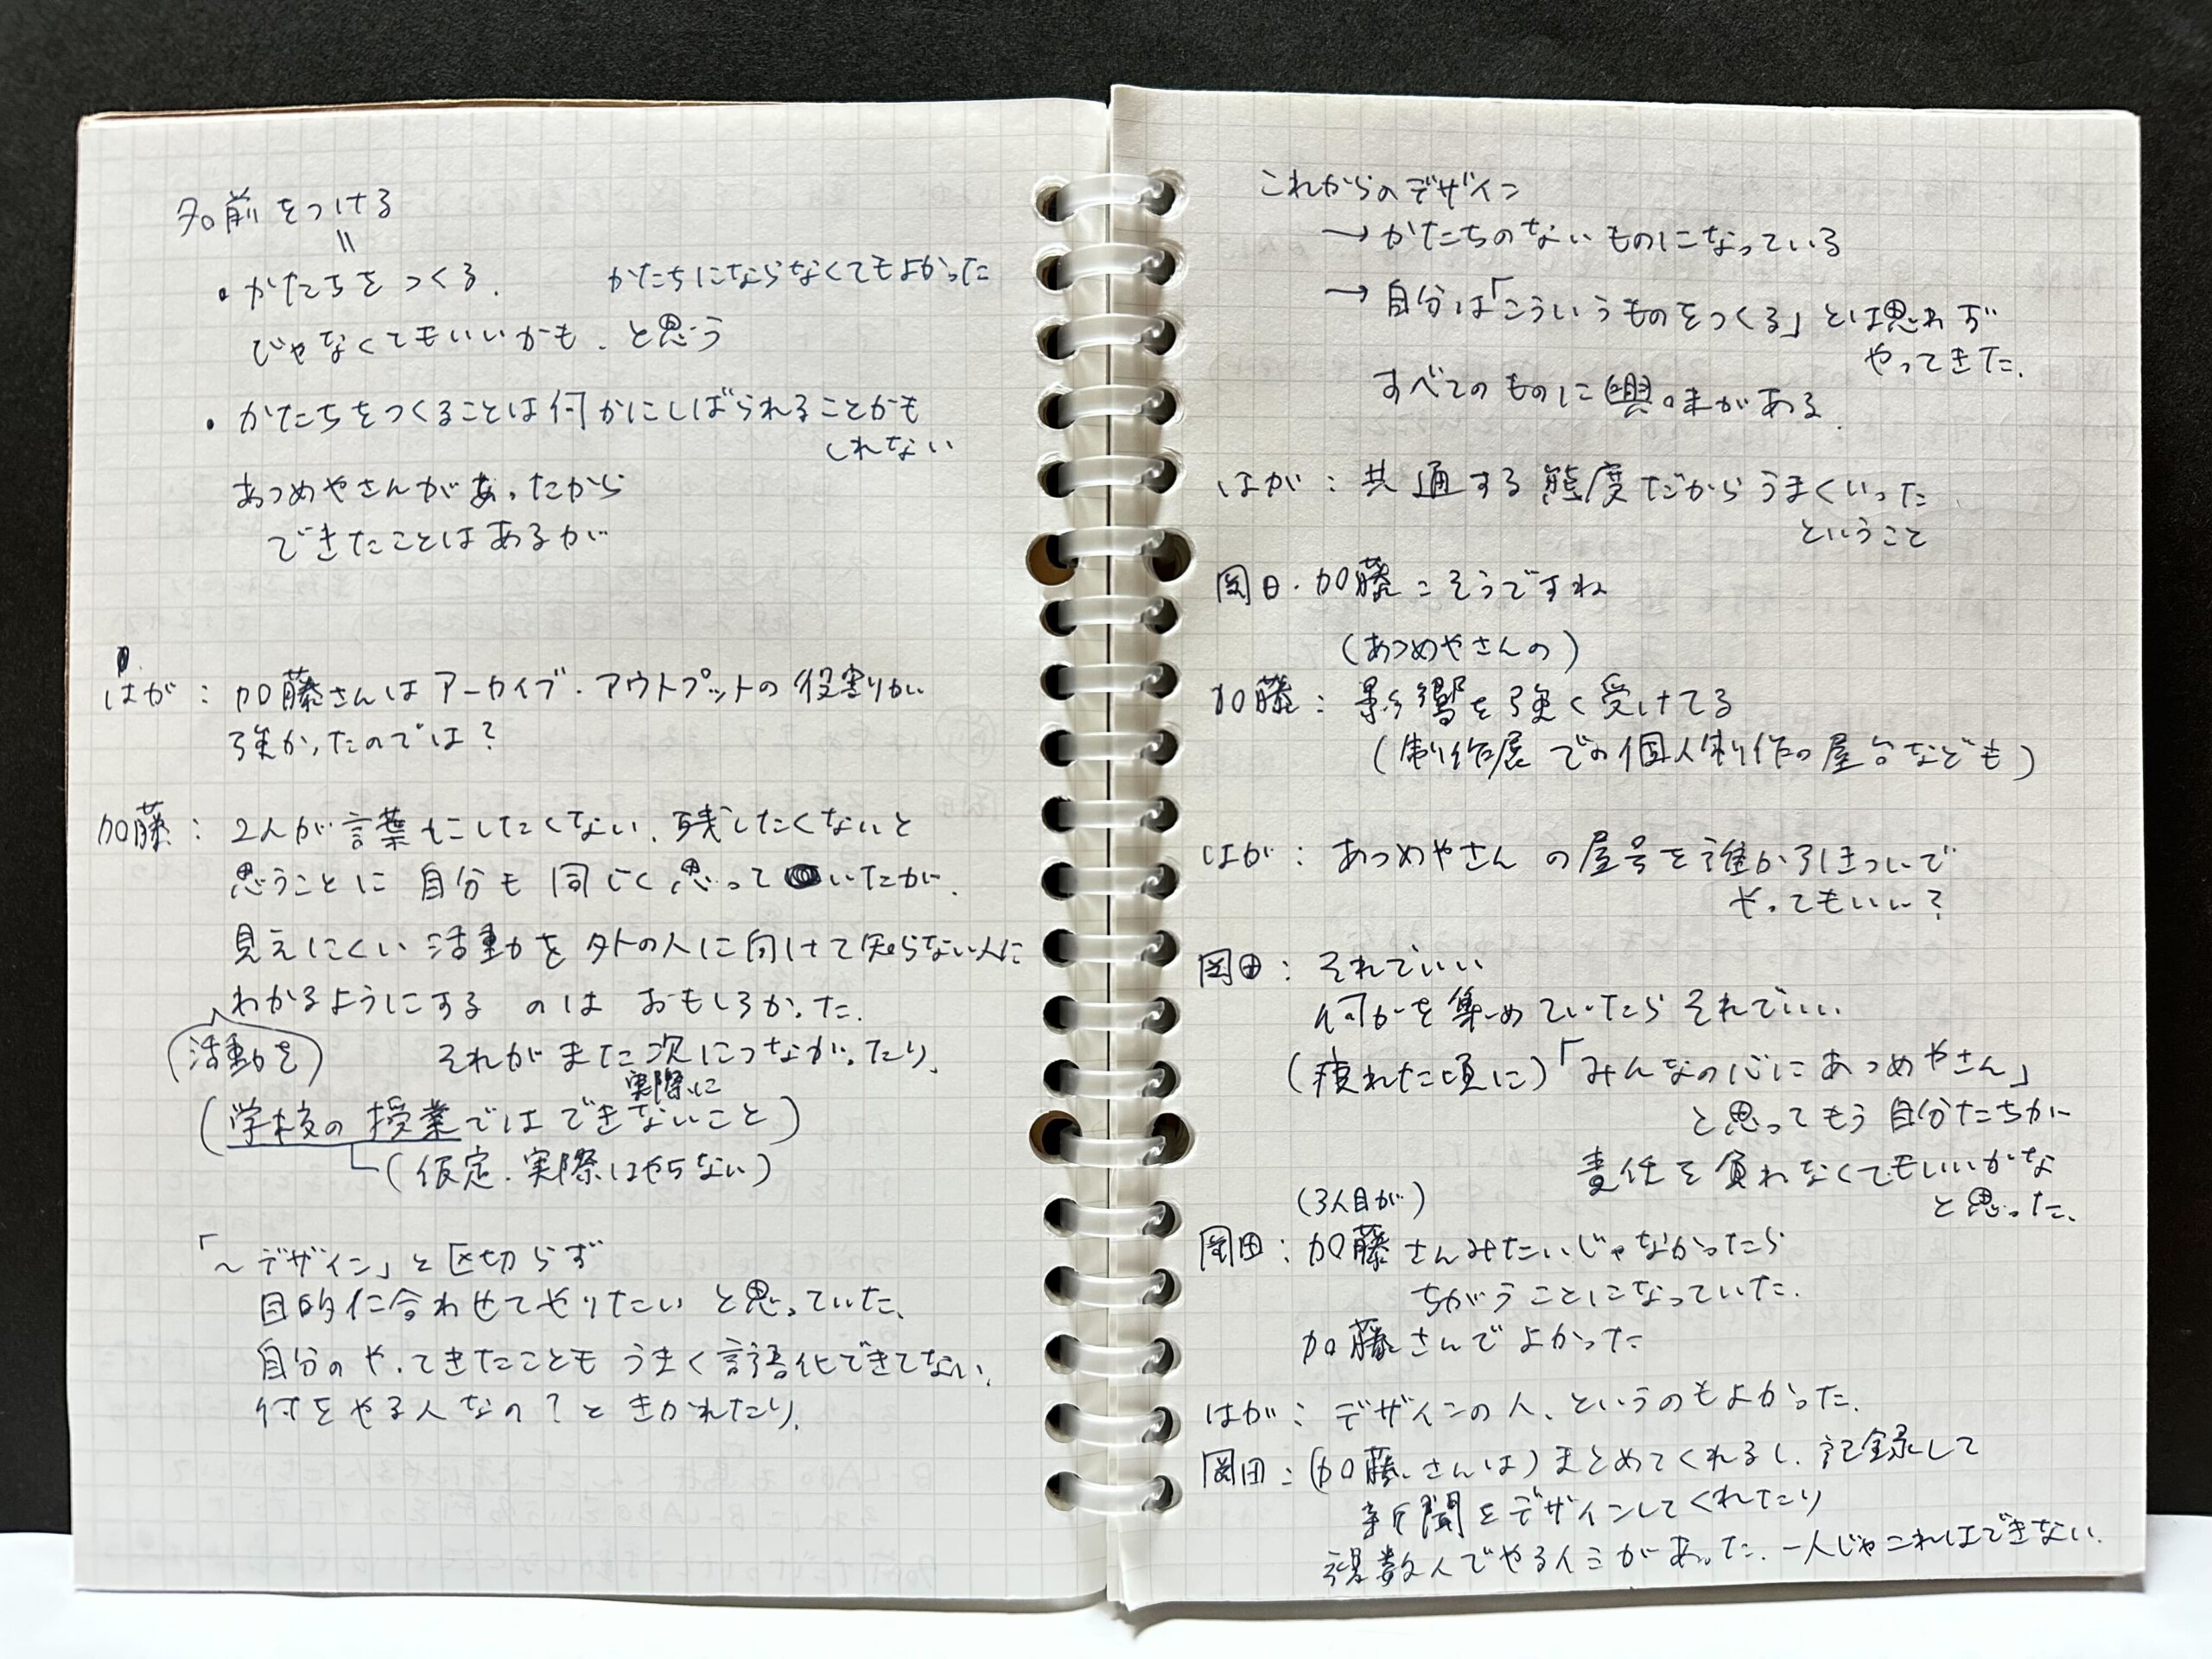 名前をつける
〃
・かたちをつくる. かたちにならなくてもよかった
じゃなくてもいいかも、と思う
・かたちをつくることは何かにしばられることかも
しれない
あつめやさんがあったから
できたことはあるが
はが：加藤さんはアーカイブ・アウトプットの役割りが
強かったのでは？
加藤：2人が言葉にしたくない、残したくないと
思うことに自分も同じく思っていたが、
見えにくい活動を外の人に向けて知らない人に
わかるようにするのはおもしろかった.
(活動を) それがまた次につながったり、
実際に
(学校の授業ではできないこと)
(仮定、実際はやらない)
「〜デザイン」と区切らず
目的に合わせてやりたいと思っていた、
自分のやってきたこともうまく言語化できてない、
何をやる人なの？ときかれたり、
これからのデザイン
→かたちのないものになっている
→自分は「こういうものをつくる」とは思わず
やってきた.
すべてのものに興味がある.
はが：共通する態度だからうまくいった
ということ
岡田・加藤：そうですね
(あつめやさんの)
加藤：影響を強く受けてる
(制作展での個人制作の屋台なども)
はが：あつめやさんの屋号を誰か引きついで
やってもいい？
岡田：それでいい
何かを集めていたらそれでいい
(疲れた頃に)「みんなの心にあつめやさん」
と思ってもう自分たちが
責任を負わなくてもいいかな
と思った、
(3人目が)
岡田：加藤さんみたいじゃなかったら
ちがうことになっていた.
加藤さんでよかった
はが：デザインの人、というのもよかった.
岡田：(加藤さんは)まとめてくれるし、記録して
新聞をデザインしてくれたり
複数人でやるイミがあった、一人じゃこれはできない.